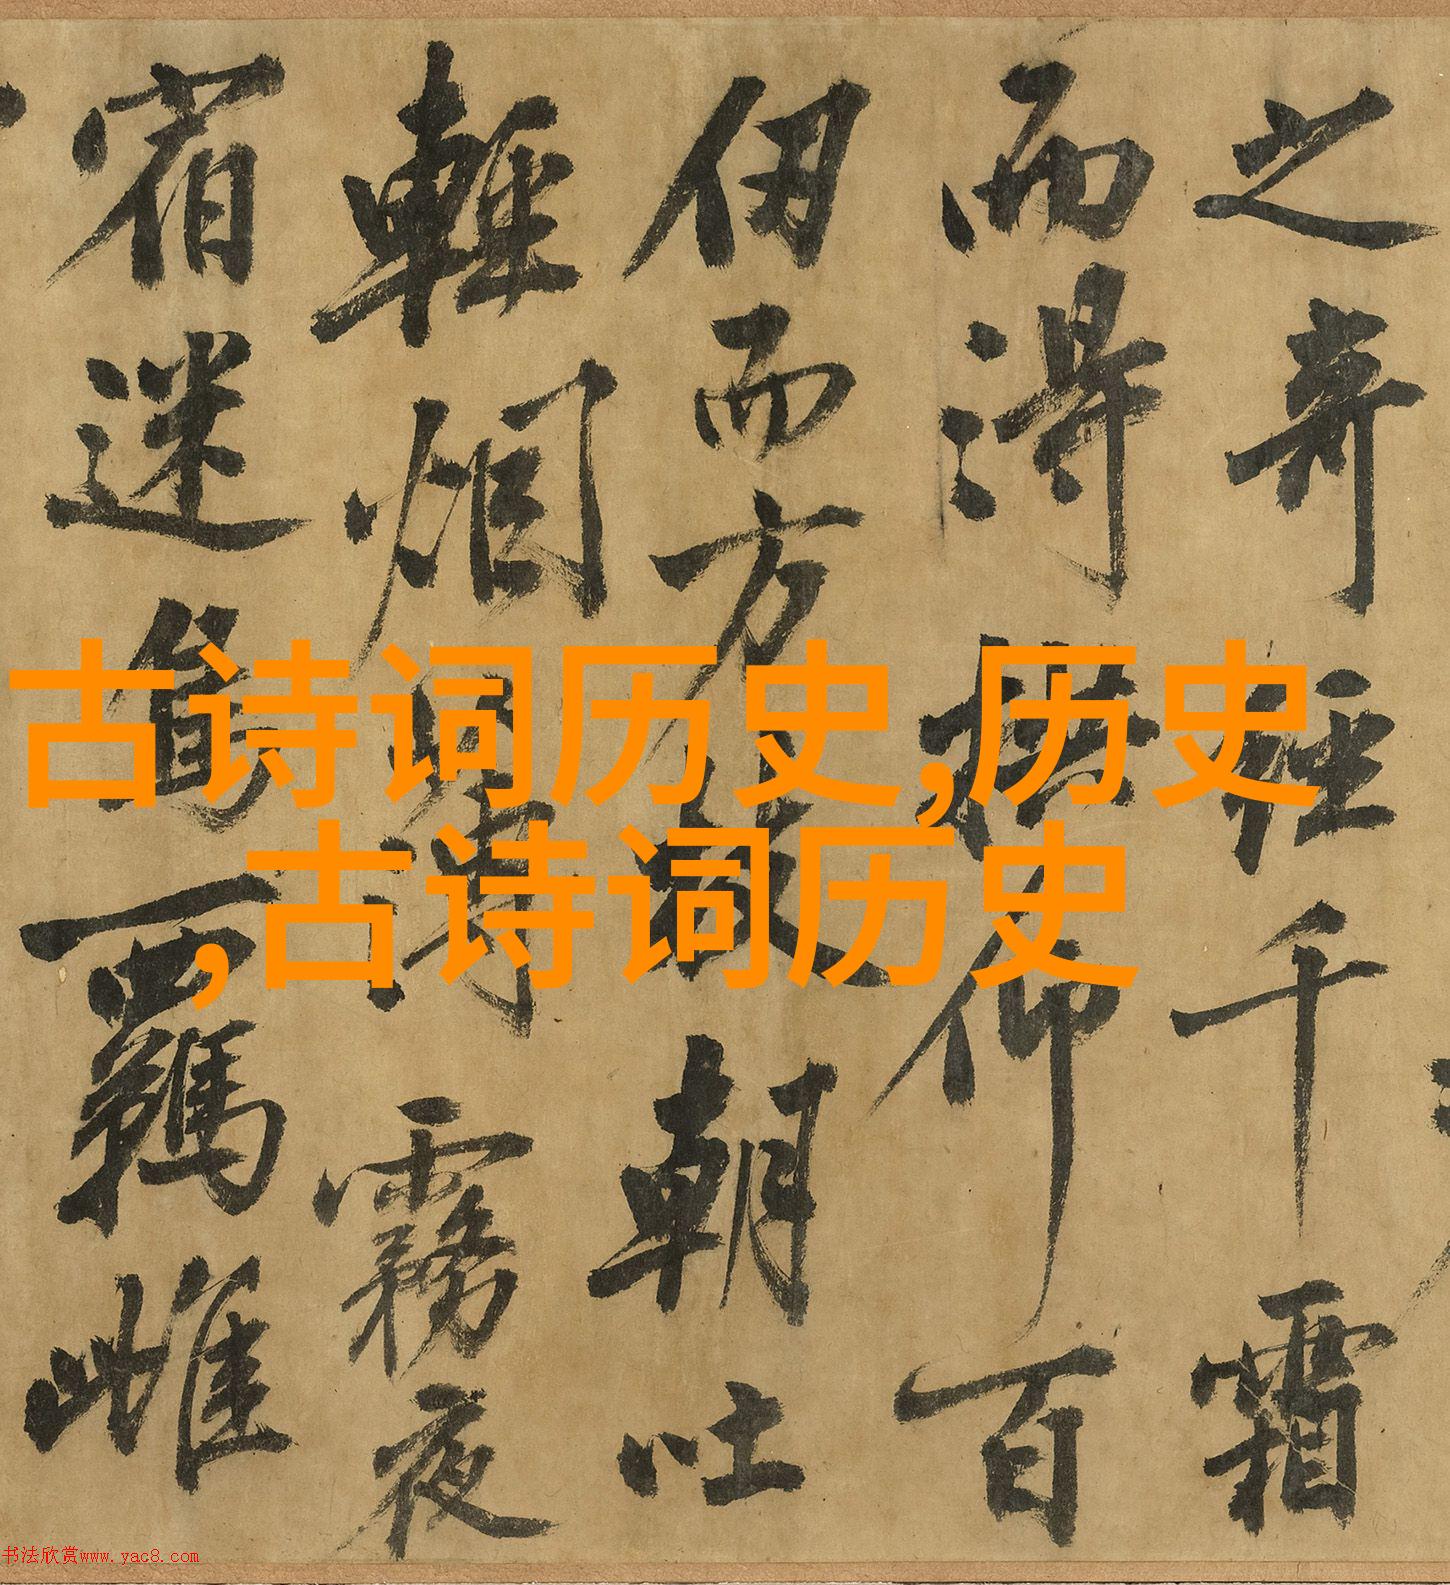 之奇經千霜
而得拱仰百
仞而方朝吐
輕烟薄霧夜
宿迷羈雌
古诗词历史,历史
,古诗词历史
书法欣赏www.yac8.com